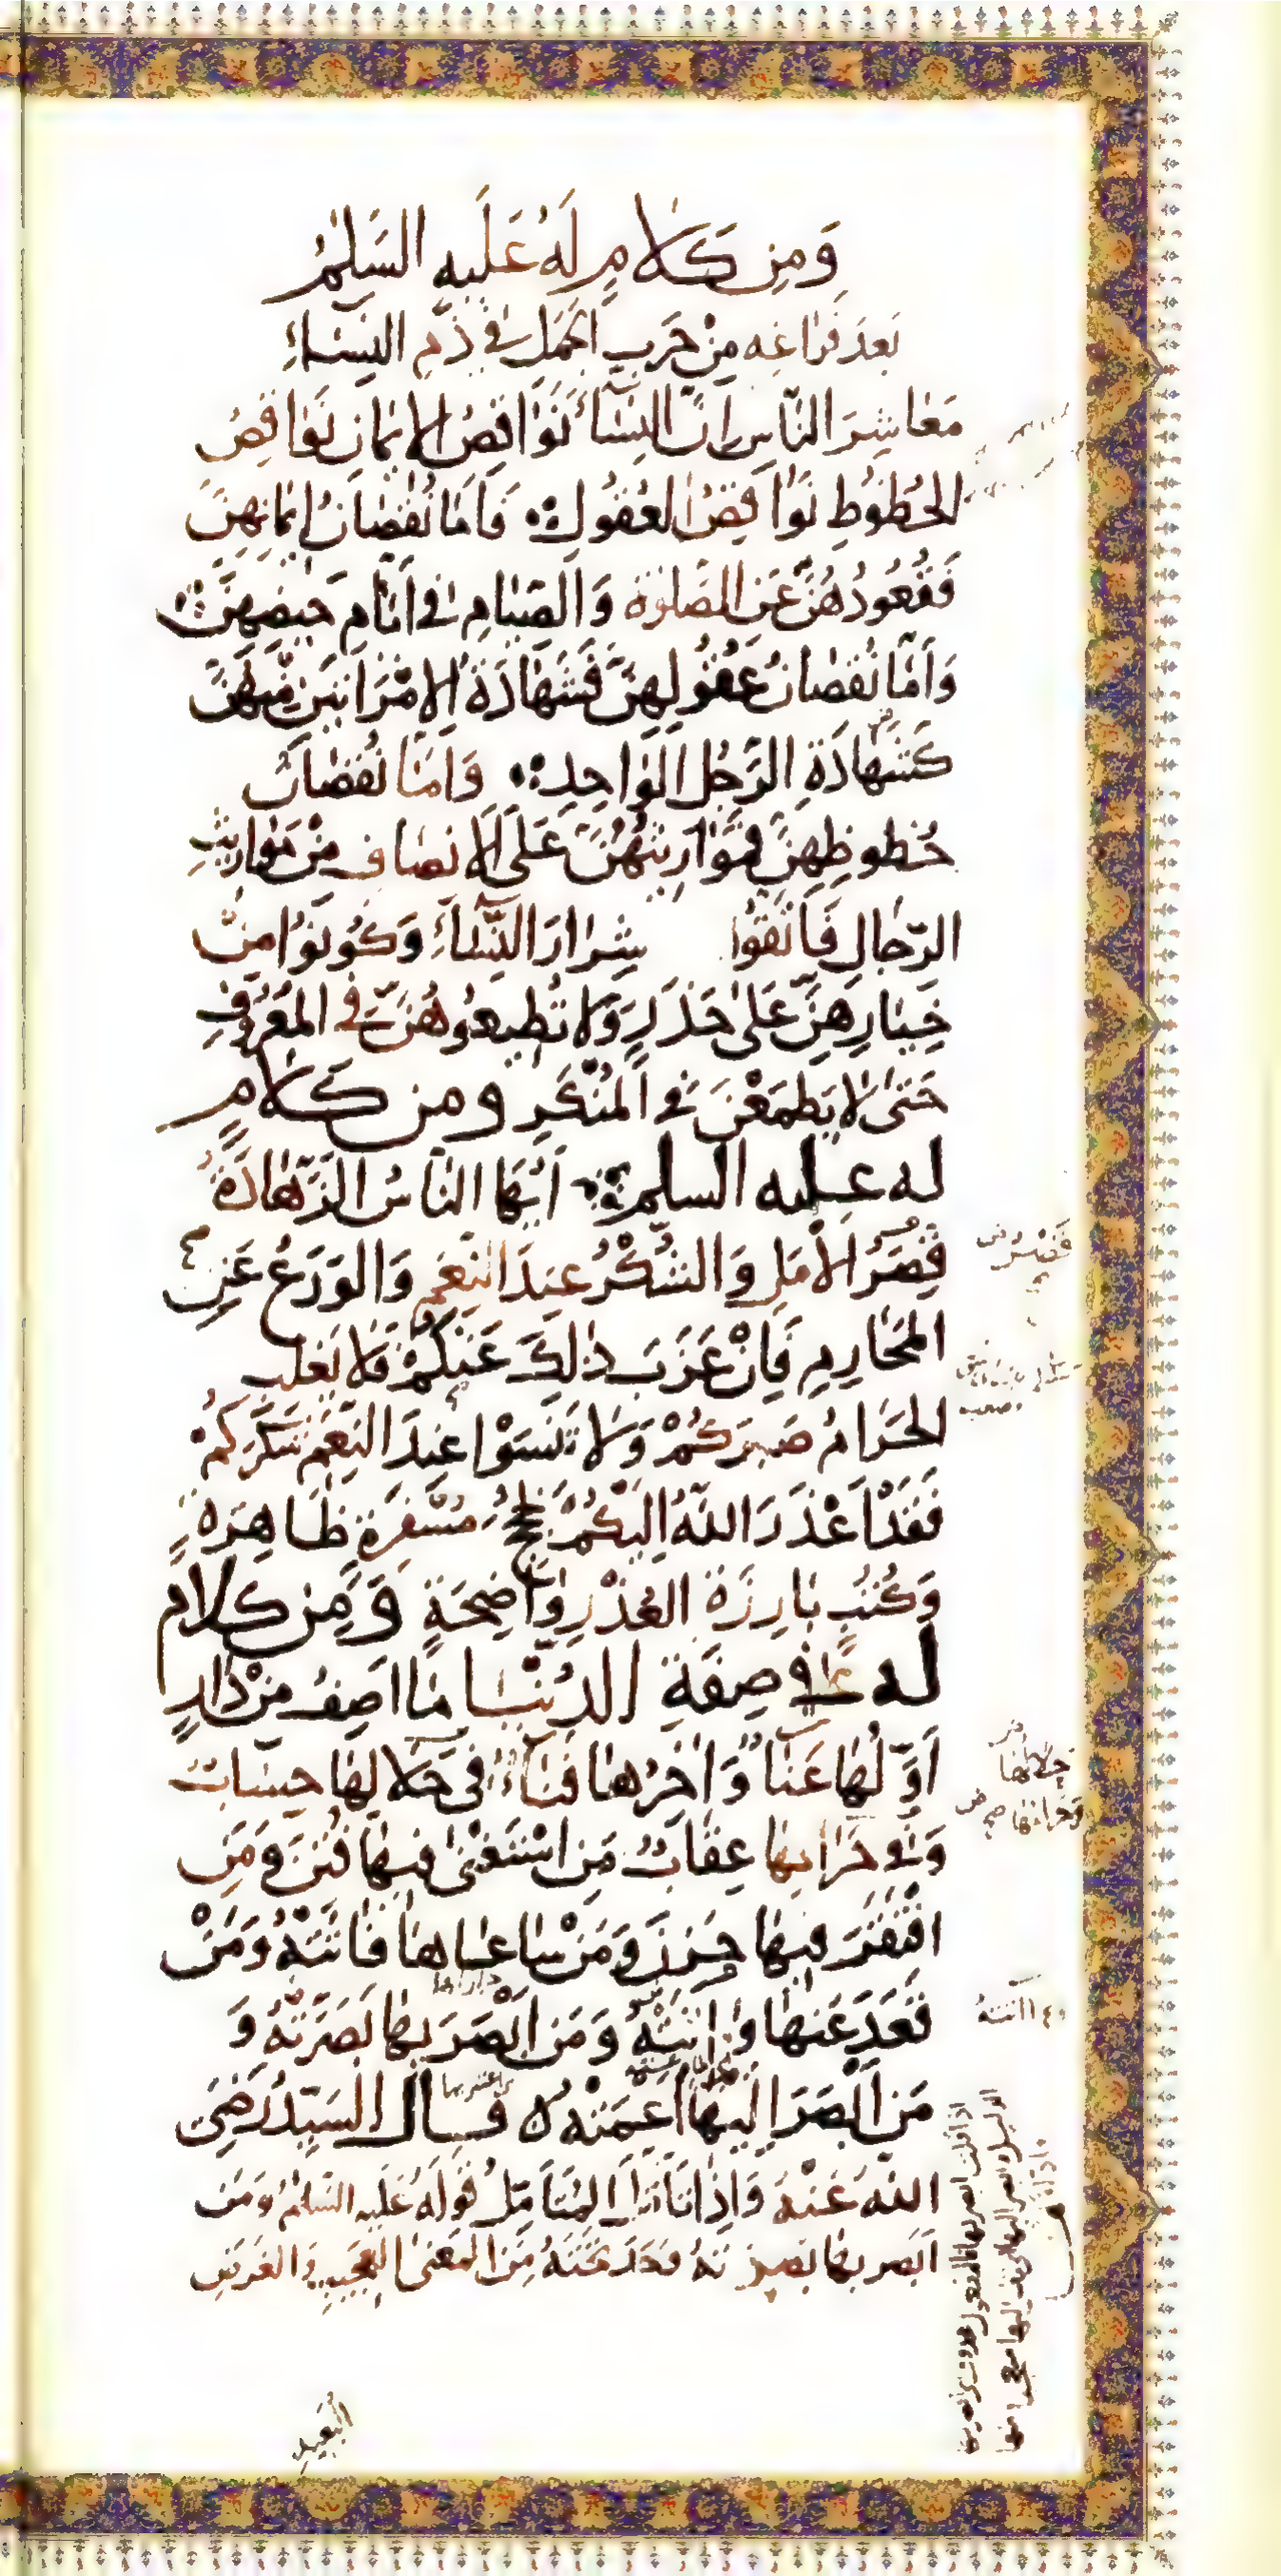 وَمِن كَلَامٍ لَهُ عَلَيهِ السَلَمُ
بَعدَ فَرَاغِه مِنْ حَربِ الجَمَل في ذَمِّ النِسَاءِ
مَعَاشِرَ النَّاسِ اِنَّ النِسَاءَ نَوَاقِصُ الاِيمَانِ نَوَاقِصُ
الحُظُوظِ نَوَاقِصُ العُقُولِ فَاَمَّا نُقصَانُ اِيمَانِهِنَّ
فَقُعُودُهُنَّ عَنِ الصَلوةِ وَالصِيَامِ في اَيَّامِ حَيضِهِنَّ
وَاَمَّا نُقصَانُ عُقُولِهِنَّ فَشَهَادَةُ الاِمْرَاَتَينِ مِنهُنَّ
كَشَهَادَةِ الرَّجُلِ الوَاحِدِ وَاَمَّا نُقصَانُ
حُظوظِهِنَّ فَمَوَارِيثُهُنَّ عَلَى الاَنصَافِ مِنْ مَوَارِيثِ
الرِّجَالِ فَاتَّقُوا شِرَارَ النِّسَاءِ وَكُونُوا مِنْ
خِيَارِهِنَّ عَلَى حَذَرٍ وَلَا تُطِيعُوهُنَّ في المَعرُوفِ
حَتَّى لا يَطمَعْنَ في المُنْكَرِ ومن كَلَامٍ
له عليه السلم اَيُّهَا النَّاسُ الزَّهَادَةُ
قِصَرُ الأَمَلِ وَالشُكْرُ عِندَ النِعَمِ وَالوَرَعُ عَنِ
المَحَارِمِ فَاِنْ عَزَبَ ذٰلِكَ عَنكُمْ فَلَا يَغلِب
الحَرَامُ صَبرَكُمْ وَلَا تَنسَوْا عِندَ النِعَمِ شُكرَكُمْ
فَقَدْ اَعْذَرَ اللهُ اِلَيكُمْ بحُجَجٍ مُسفِرَةٍ ظَاهِرَةٍ
وَكُتُبٍ بَارِزَةِ العُذْرِ وَاضِحَةٍ وَمِن كَلَام
له ع في صِفَةِ الدُنْيَا مَا اَصِفُ مِنْ دَارٍ
اَوَّلُهَا عَنَاءٌ وَاٰخِرُهَا فَنَاءٌ في حَلَالِهَا حِسَابٌ
وَفي حَرَامِهَا عِقَابٌ مَنِ اسْتَغنَى فِيهَا فُتِنَ وَمَنِ
افْتَقَرَ فِيهَا حَزِنَ وَمَنْ سَاعَاهَا فَاتَتْهُ وَمَنْ
قَعَدَ عَنهَا وَاتَتْهُ وَمَن اَبْصَرَ بِهَا بَصَّرَتْهُ وَ
مَن اَبْصَرَ اِلَيهَا اَعْمَتْهُ قال السَيِّدُ رَضِيَ
اللهُ عَنْهُ وَاِذَا تَأَمَّلَ المُتَأَمِّلُ قَولَهُ عَلَيهِ السَلَمُ وَمَن
اَبصَر بِهَا بَصَّرَتْهُ وَجَدَ تَحتَهُ مِنَ المَعنَى العَجِيبِ وَالغَرَضِ
البَعِيدِ
حَلَالها